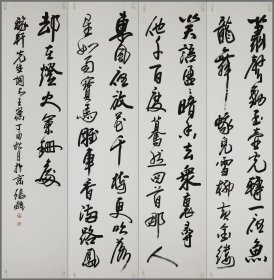 簫聲動玉壺光轉一夜魚
龍舞蛾兒雪柳黃金縷
笑語盈盈暗香去衆裏尋
他千百度驀然回首那人
東風夜放花千樹更吹落
星如雨寶馬雕車香滿路鳳
却在燈火闌珊處
稼軒先生詞 丁酉